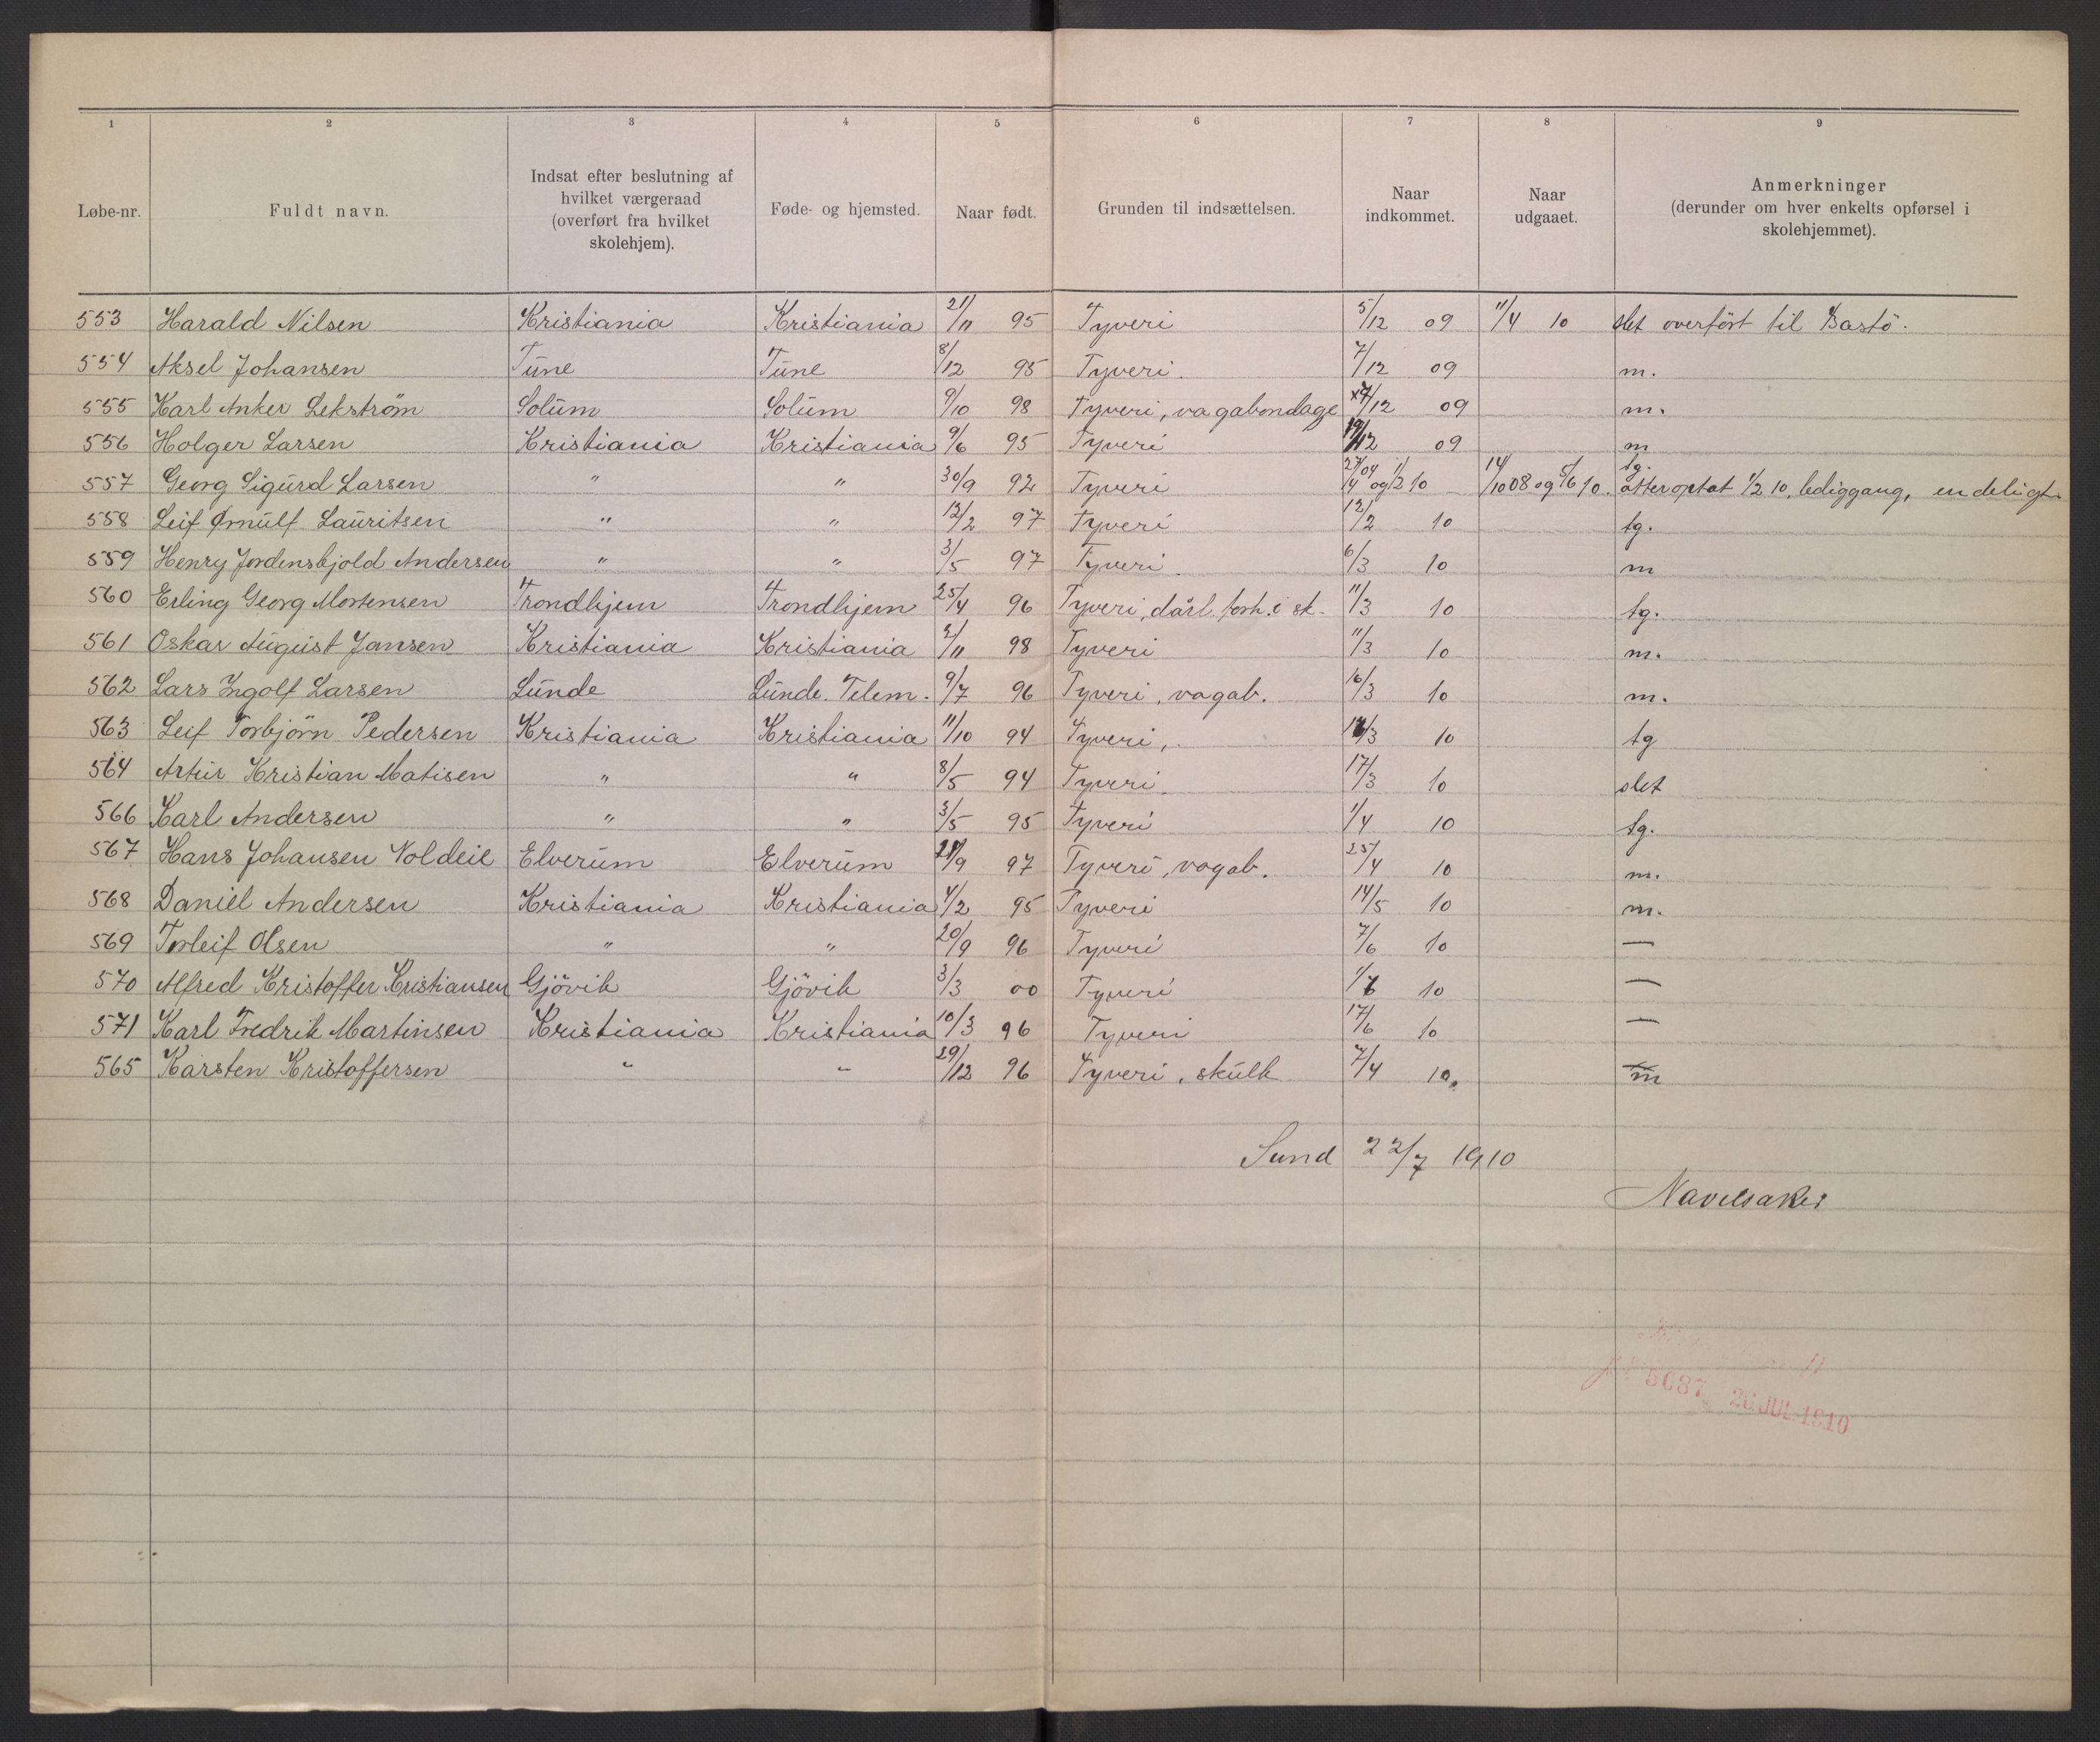 1 2 3 4 5 6 7 8 9
Løbe-nr. Fuldt navn. Indsat efter beslutning af hvilket værgeraad (overført fra hvilket skolehjem). Føde- og hjemsted. Naar født. Grunden til indsættelsen. Naar indkommet. Naar udgaaet. Anmerkninger (derunder om hver enkelts opførsel i skolehjemmet).
553 Harald Nilsen Kristiania Kristiania 21/11 95 Tyveri 5/12 09 11/4 10 slet overført til Bastö.
554 Aksel Johansen Tune Tune 8/12 95 Tyveri. 7/12 09 m.
555 Karl Anker Lekström Solum Solum 9/10 98 Tyveri, vagabondage 17/12 09 m.
556 Holger Larsen Kristiania Kristiania 9/6 95 Tyveri 19/12 09 m
557 Georg Sigurd Larsen " " 30/9 92 Tyveri 27/4 04 og 1/2 10 14/10 08 og 5/6 10. tg. atter optat 1/2 10, lediggang, endeligt
558 Leif Ørnulf Lauritsen " " 12/2 97 Tyveri 12/2 10 tg.
559 Henry Jordenskjold Andersen " " 3/5 97 Tyveri. 6/3 10 m
560 Erling Georg Mortensen Trondhjem Trondhjem 25/4 96 Tyveri, dårl. forh. i sk. 11/3 10 tg.
561 Oskar August Jansen Kristiania Kristiania 2/11 98 Tyveri 11/3 10 m.
562 Lars Ingolf Larsen Lunde Lunde. Telem. 9/7 96 Tyveri, vagab. 16/3 10 m.
563 Leif Torbjörn Pedersen Kristiania Kristiania 11/10 94 Tyveri, 16/3 10 tg
564 Artur Kristian Matisen " " 8/5 94 Tyveri. 17/3 10 slet
566 Karl Andersen " " 3/5 95 Tyveri 1/4 10 tg.
567 Hans Johansen Noldeie Elverum Elverum 21/9 97 Tyveri, vagab. 25/4 10 m.
568 Daniel Andersen Kristiania Kristiania 4/2 95 Tyveri 14/5 10 m.
569 Torleif Olsen " " 20/9 96 Tyveri 7/6 10 —
570 Alfred Kristoffer Kristiansen Gjövik Gjövik 3/3 00 Tyveri 1/6 10 —
571 Karl Fredrik Martinsen Kristiania Kristiania 10/3 96 Tyveri 17/6 10 —
565 Karsten Kristoffersen " " 29/12 96 Tyveri, skulk 7/4 10. m
Sund 22/7 1910
Navelsaker
5687 26 JUL 1910